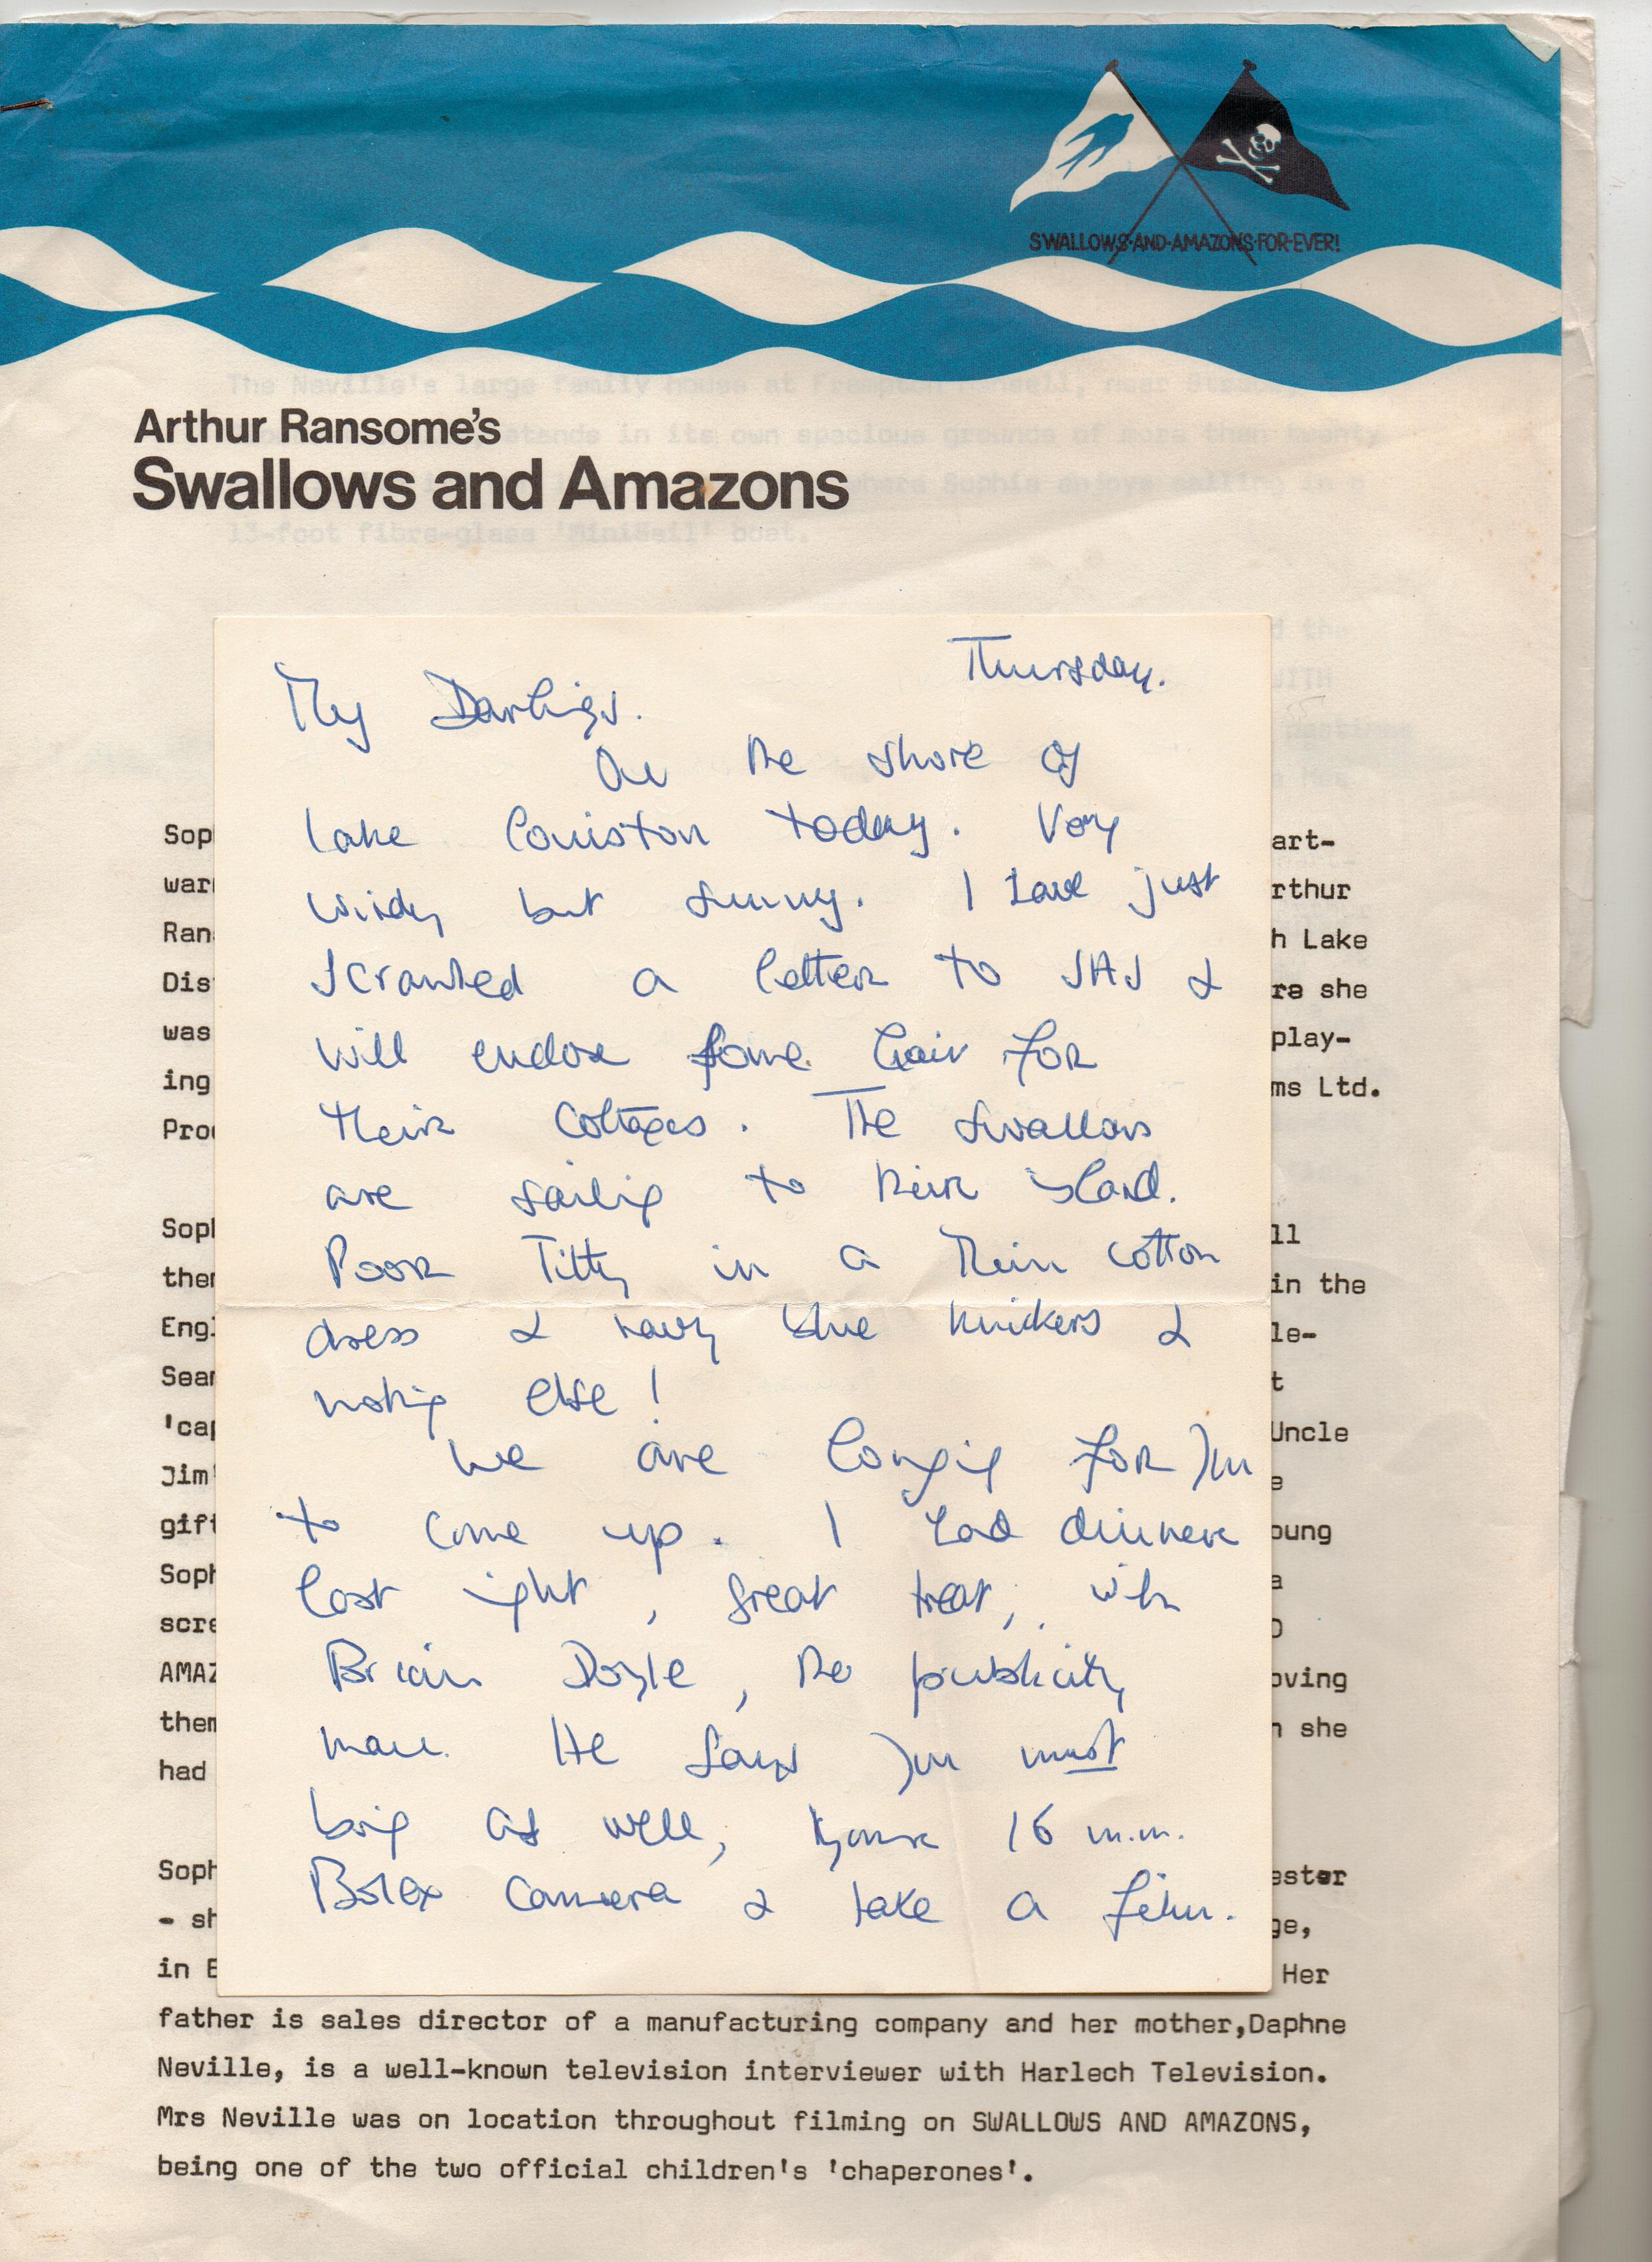 SWALLOWS·AND·AMAZONS·FOR·EVER!
The Neville's large family house at Frampton Mansell, near
stands in its own spacious grounds of more than twenty
where Sophie enjoys sailing in a
13-foot fibre-glass 'MiniSail' boat.
Arthur Ransome's
Swallows and Amazons
Thursday.
My Darlings.
On the shore of
Lake Coniston today. Very
windy but sunny. I have just
scrawled a letter to &
will enclose some hair for
their cottages. The Swallows
are sailing to their island.
Poor Titty in a thin cotton
dress & navy blue knickers &
nothing else!
We are longing for you
to come up. I had dinner
last night, great treat, with
Brian Doyle, the publicity
man. He says you must
bring as well, your 16 m.m.
Bolex camera & take a film.
Sop art-
war rthur
Ran h Lake
Dis re she
was play-
ing ms Ltd.
Pro
Sop ll
the in the
Eng le-
Sea t
'ca Uncle
Jim' e
gif oung
Soph a
scre
AMAZ oving
them n she
had
Soph ester
- sh ge,
in Her
father is sales director of a manufacturing company and her mother,Daphne
Neville, is a well-known television interviewer with Harlech Television.
Mrs Neville was on location throughout filming on SWALLOWS AND AMAZONS,
being one of the two official children's 'chaperones'.